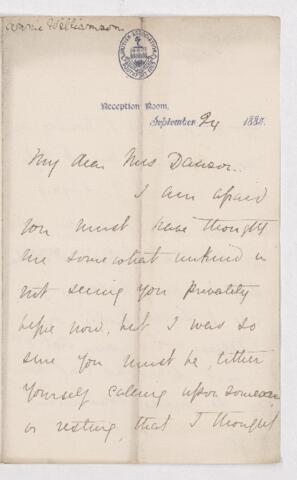 Annie Williamson
BRITISH ASSOCIATION
SOUTHPORT
Reception Room,
September 24 1883.
My dear Mrs Dawson.
I am afraid
you must have thought
me somewhat unkind in
not seeing you privately
before now, but I was so
sure you must be, either
yourself calling upon someone,
or resting, that I thought